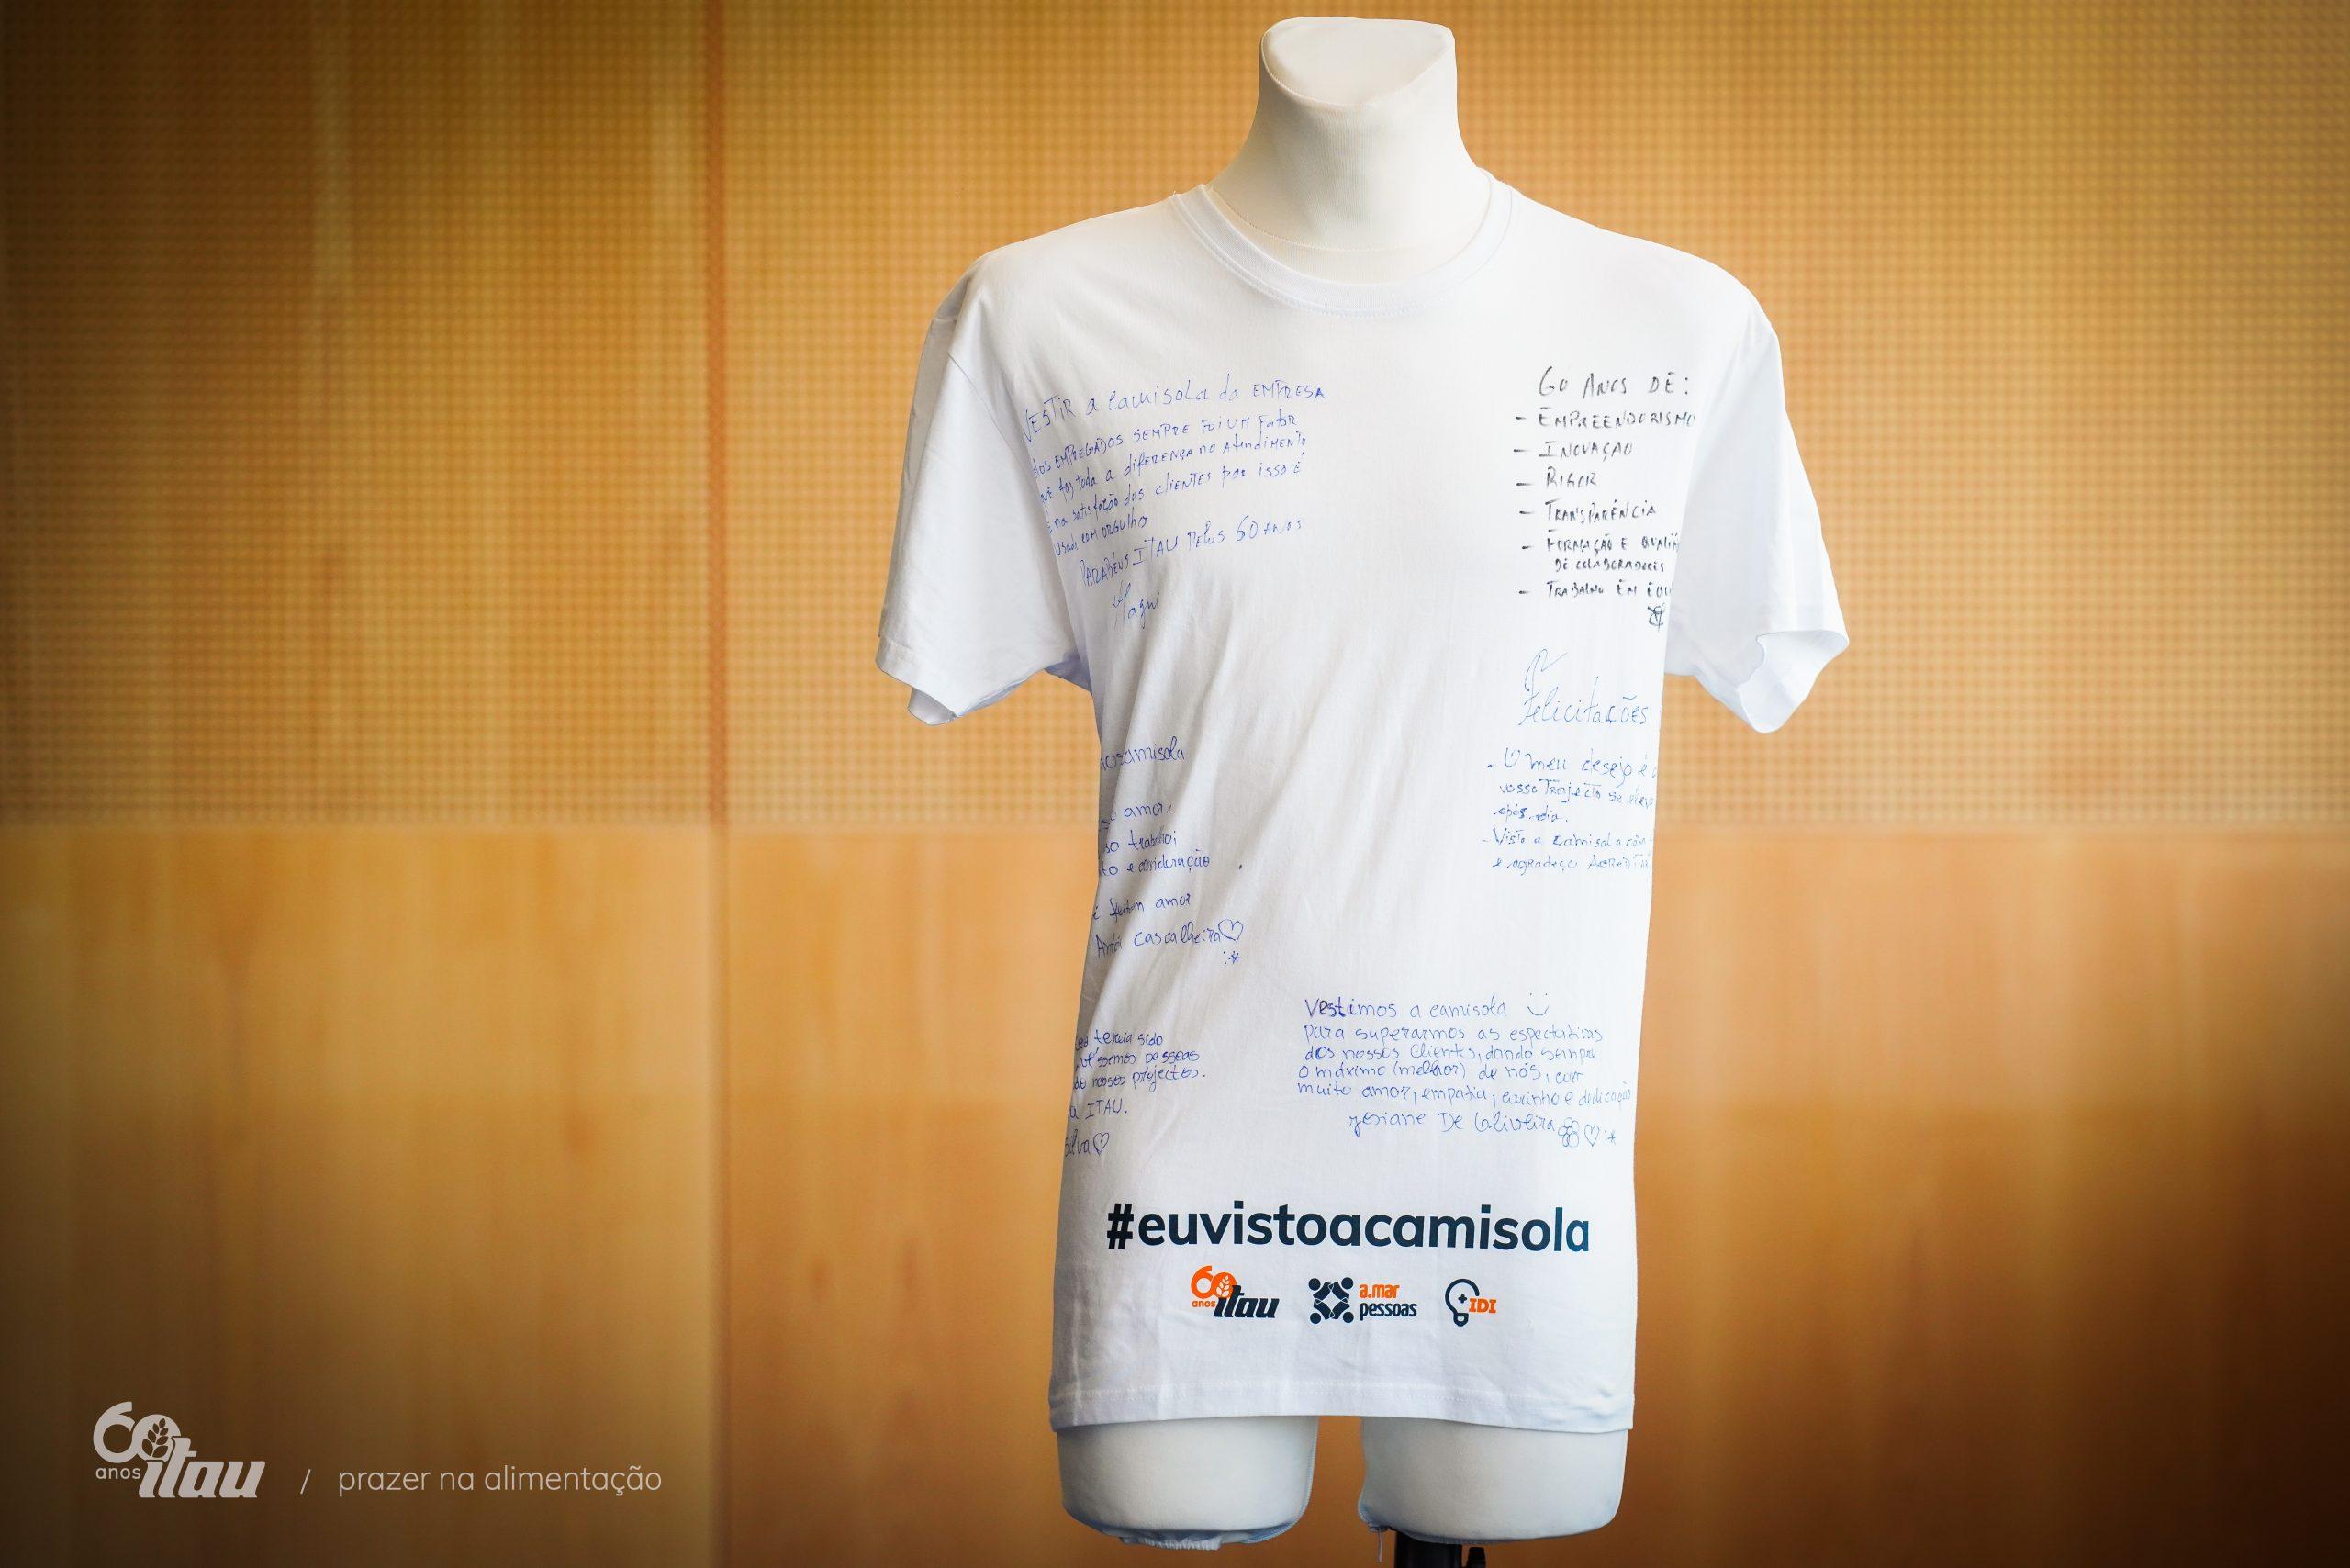 VESTIR a camisola da EMPRESA
dos EMPREGADOS SEMPRE FOI UM Fator
que faz toda a diferença no Atendimento
e na satisfação dos clientes por isso é
usada com orgulho
PARABÉNS ITAU Pelos 60 Anos
60 ANOS DE:
- EMPREENDORISMO
- INOVAÇÃO
- RIGOR
- TRANSPARÊNCIA
- FORMAÇÃO E
DE COLABORADORES
- TRABALHO EM
Felicitações
. O meu desejo é
vosso Trajecto se
após dia.
- Visto a camisola com
e agradeço
camisola
amor.
trabalho
to e consideração
é feito em amor
Cascalheira♡
:*
teria sido
pessoas
nossos projectos.
a ITAU.
Silva♡
Vestimos a camisola
para superarmos as espectativas
dos nossos Clientes, dando sempre
o máximo (melhor) de nós, com
muito amor, empatia, carinho e dedicação
Josiane De Oliveira ♡:*
#euvistoacamisola
60 anos itau
a.mar
pessoas
IDI
60 anos itau / prazer na alimentação